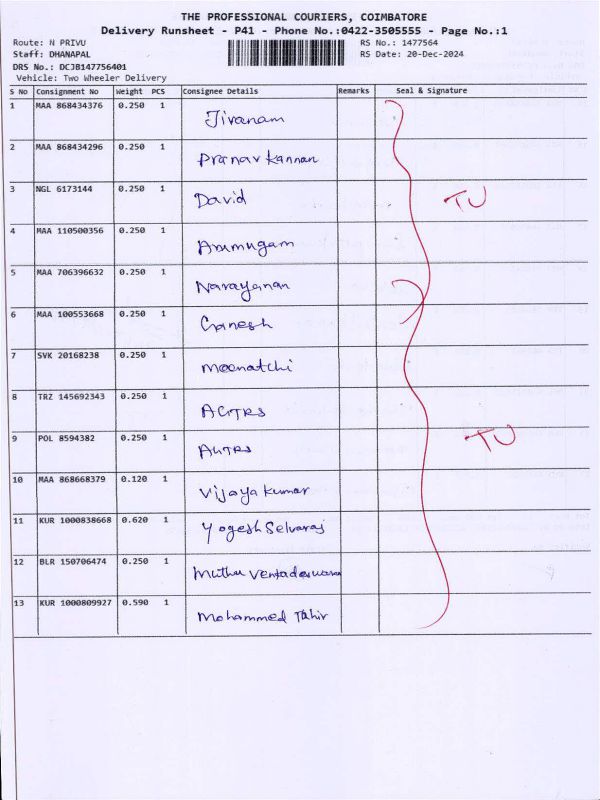 THE PROFESSIONAL COURIERS, COIMBATORE
Delivery Runsheet - P41 - Phone No.:0422-3505555 - Page No.:1
Route: N PRIVU
RS No.: 1477564
Staff: DHANAPAL
RS Date: 20-Dec-2024
DRS No.: DCJB147756401
Vehicle: Two Wheeler Delivery
S No Consignment No Weight PCS Consignee Details Remarks Seal & Signature
1 MAA 868434376 0.250 1 Jivanam
2 MAA 868434296 0.250 1 Pranav Kannan
3 NGL 6173144 0.250 1 David TU
4 MAA 110500356 0.250 1 Arumugam
5 MAA 706396632 0.250 1 Narayanan
6 MAA 100553668 0.250 1 Ganesh
7 SVK 20168238 0.250 1 Meenatchi
8 TRZ 145692343 0.250 1
9 POL 8594382 0.250 1 TU
10 MAA 868668379 0.120 1 Vijaya Kumar
11 KUR 1000838668 0.620 1 Yogesh Selvaraj
12 BLR 150706474 0.250 1 Muthu
13 KUR 1000809927 0.590 1 Mohammed Tahir